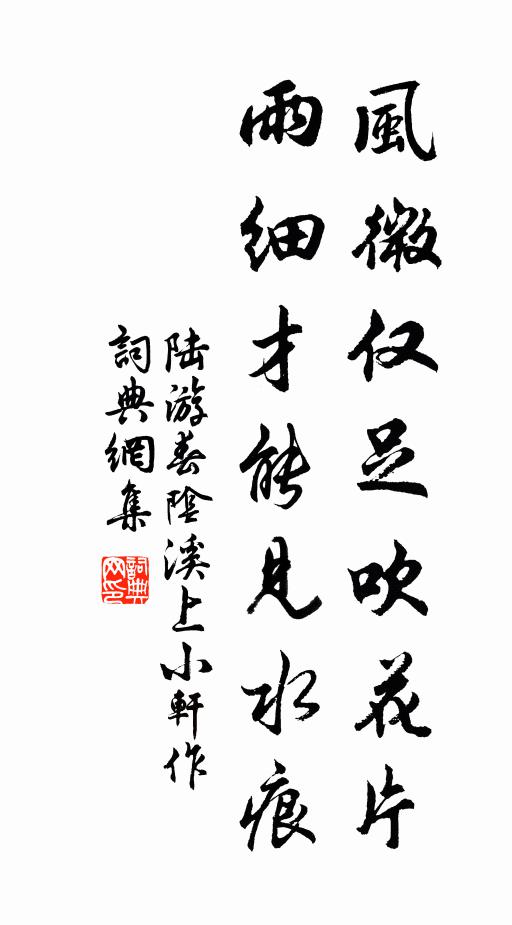 風微仅足吹花片
雨细才能見水痕
陆游春陰溪上小軒作
詞典網集
詞典网印